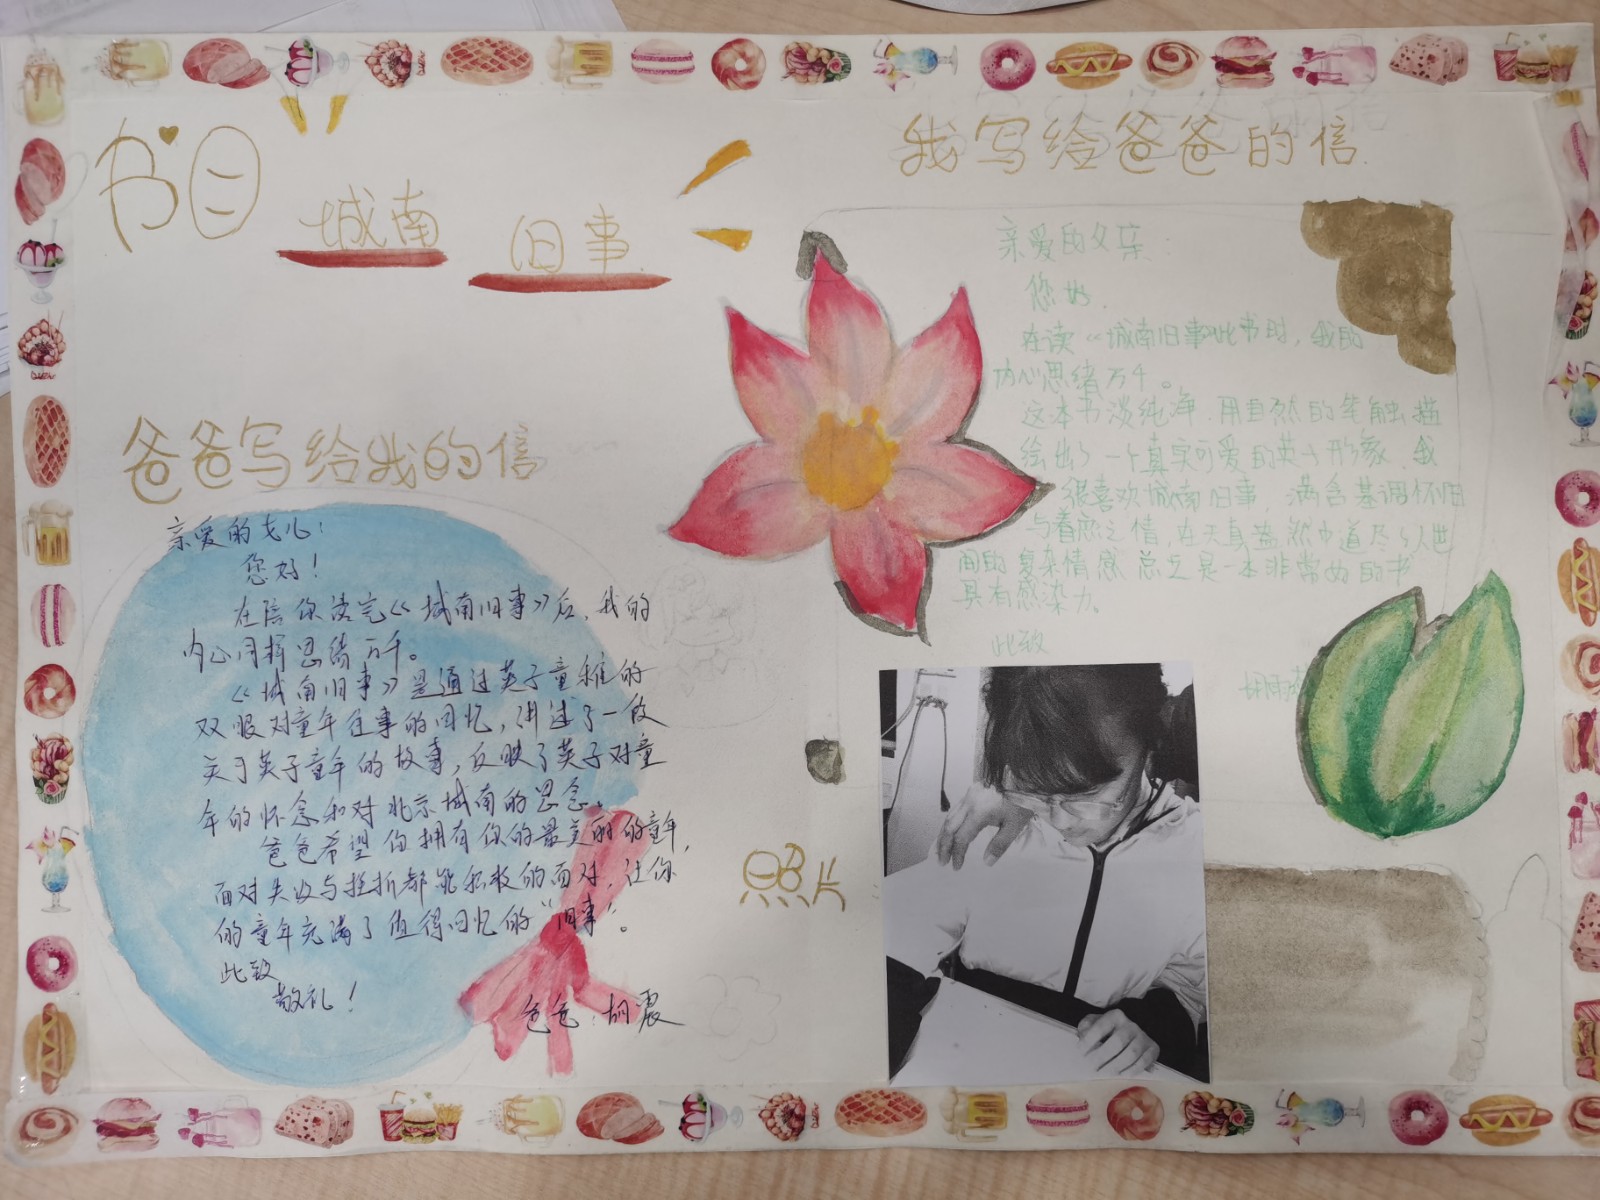 书目
城南 旧事
爸爸写给我的信
亲爱的女儿：
您好！
在陪你读完《城南旧事》后，我的
内心同样思绪万千。
《城南旧事》是通过英子童稚的
双眼对童年往事的回忆，讲述了一段
关于英子童年的故事，反映了英子对童
年的怀念和对北京城南的思念。
爸爸希望你拥有你的最美丽的童年，
面对失败与挫折都能积极的面对，让你
的童年充满了值得回忆的“旧事”。
此致
敬礼！
爸爸：胡震
我写给爸爸的信
亲爱的父亲：
您好．
在读《城南旧事》此书时，我的
内心思绪万千。
这本书淡纯净．用自然的笔触描
绘出了一个真实可爱的英子形象．我
很喜欢城南旧事，满含基调怀旧
与着悲之情，在天真盎然中道尽了人世
间的复杂情感 总之是一本非常好的书
具有感染力。
此致
胡雨
照片